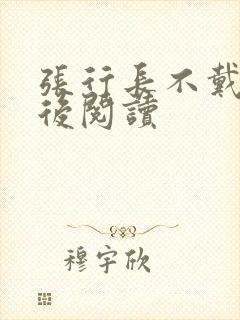 張行長不戴
後閱讀
穆宇欣